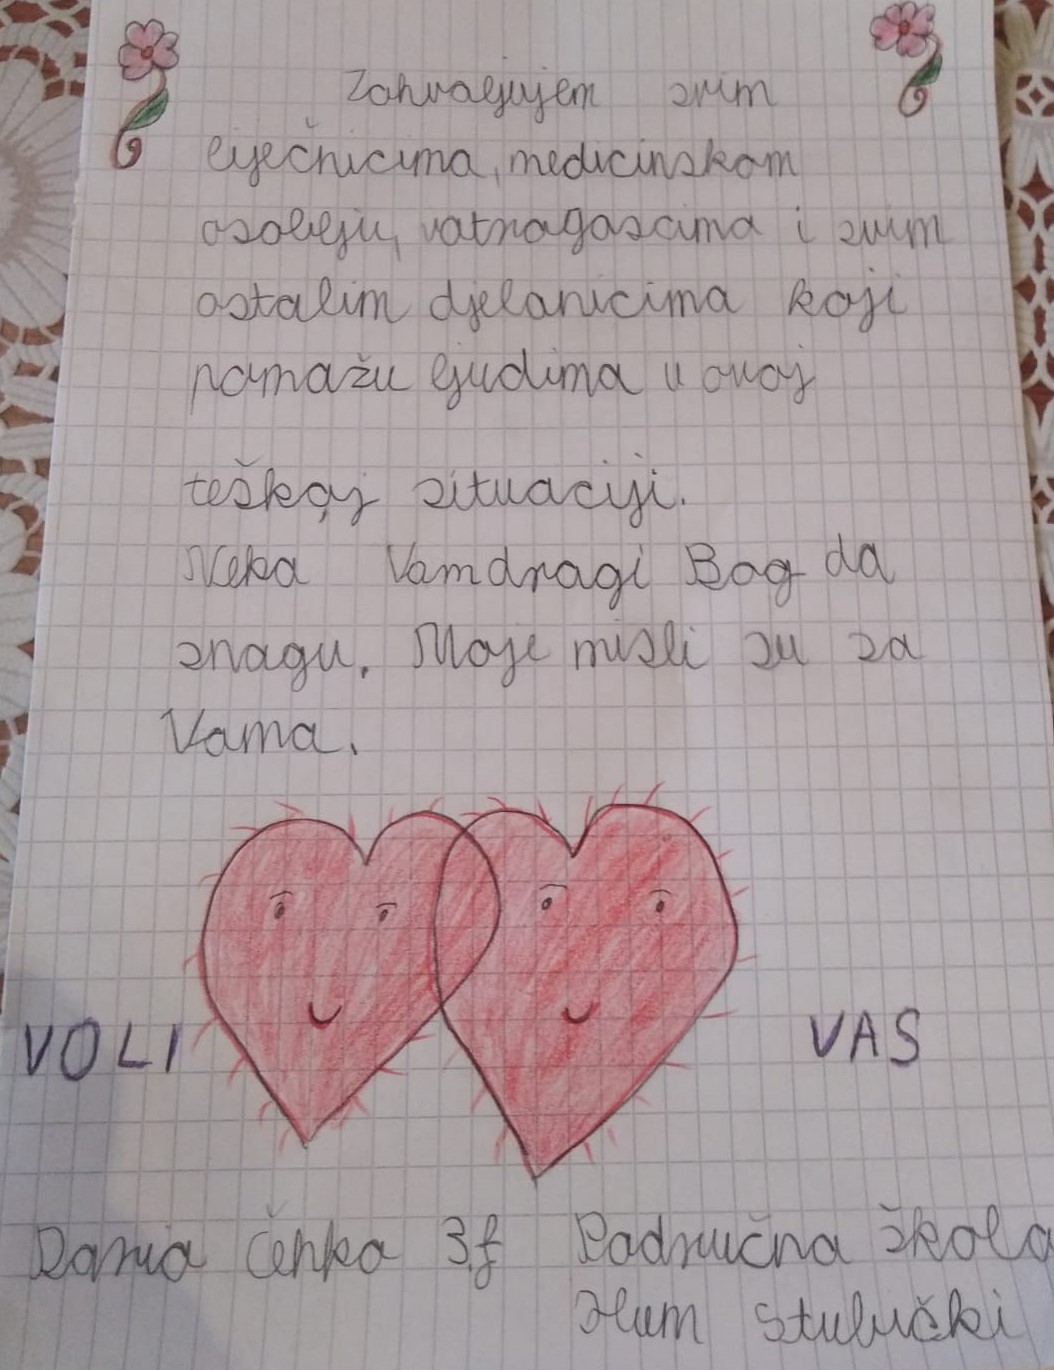 Zahvaljujem svim
liječnicima, medicinskom
osoblju, vatrogascima i svim
ostalim djelanicima koji
pomažu ljudima u ovoj
teškoj situaciji.
Neka Vam dragi Bog da
snagu. Moje misli su sa
Vama.
VOLI VAS
Daria Čehko 3.f Područna škola
Hum Stubički